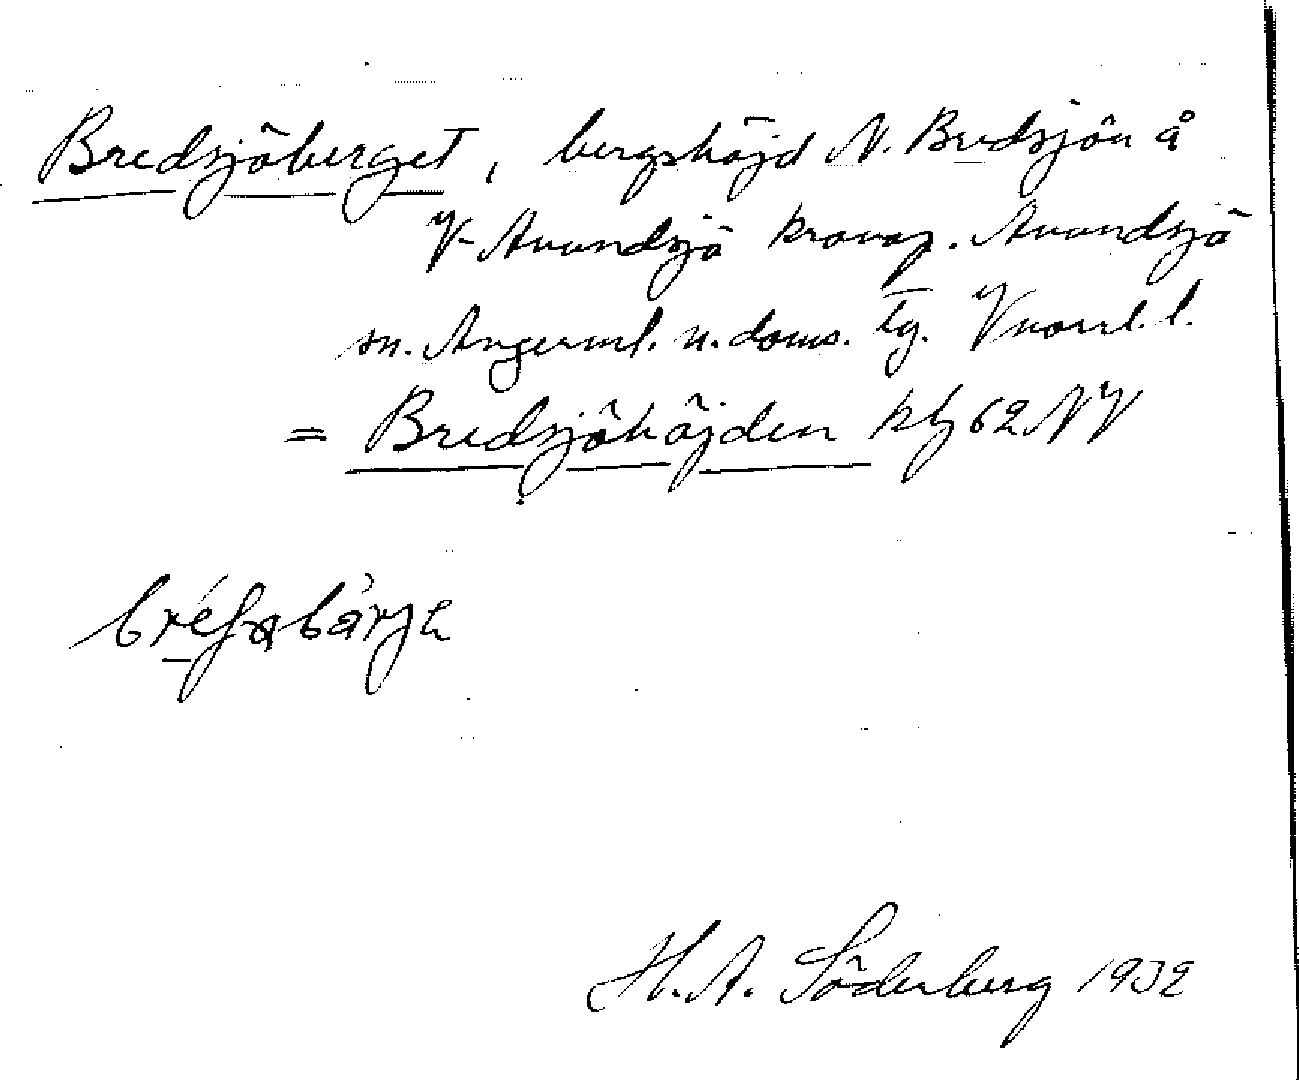 Bredsjöberget, bergshöjd N. Bredsjön å
V. Avundsjö kronop. Avundsjö
sn. Ångerml. n. doms. tg. Vnorrl. l.
= Bredsjöhöjden kbj 62 NV
H. A. Söderberg 1932